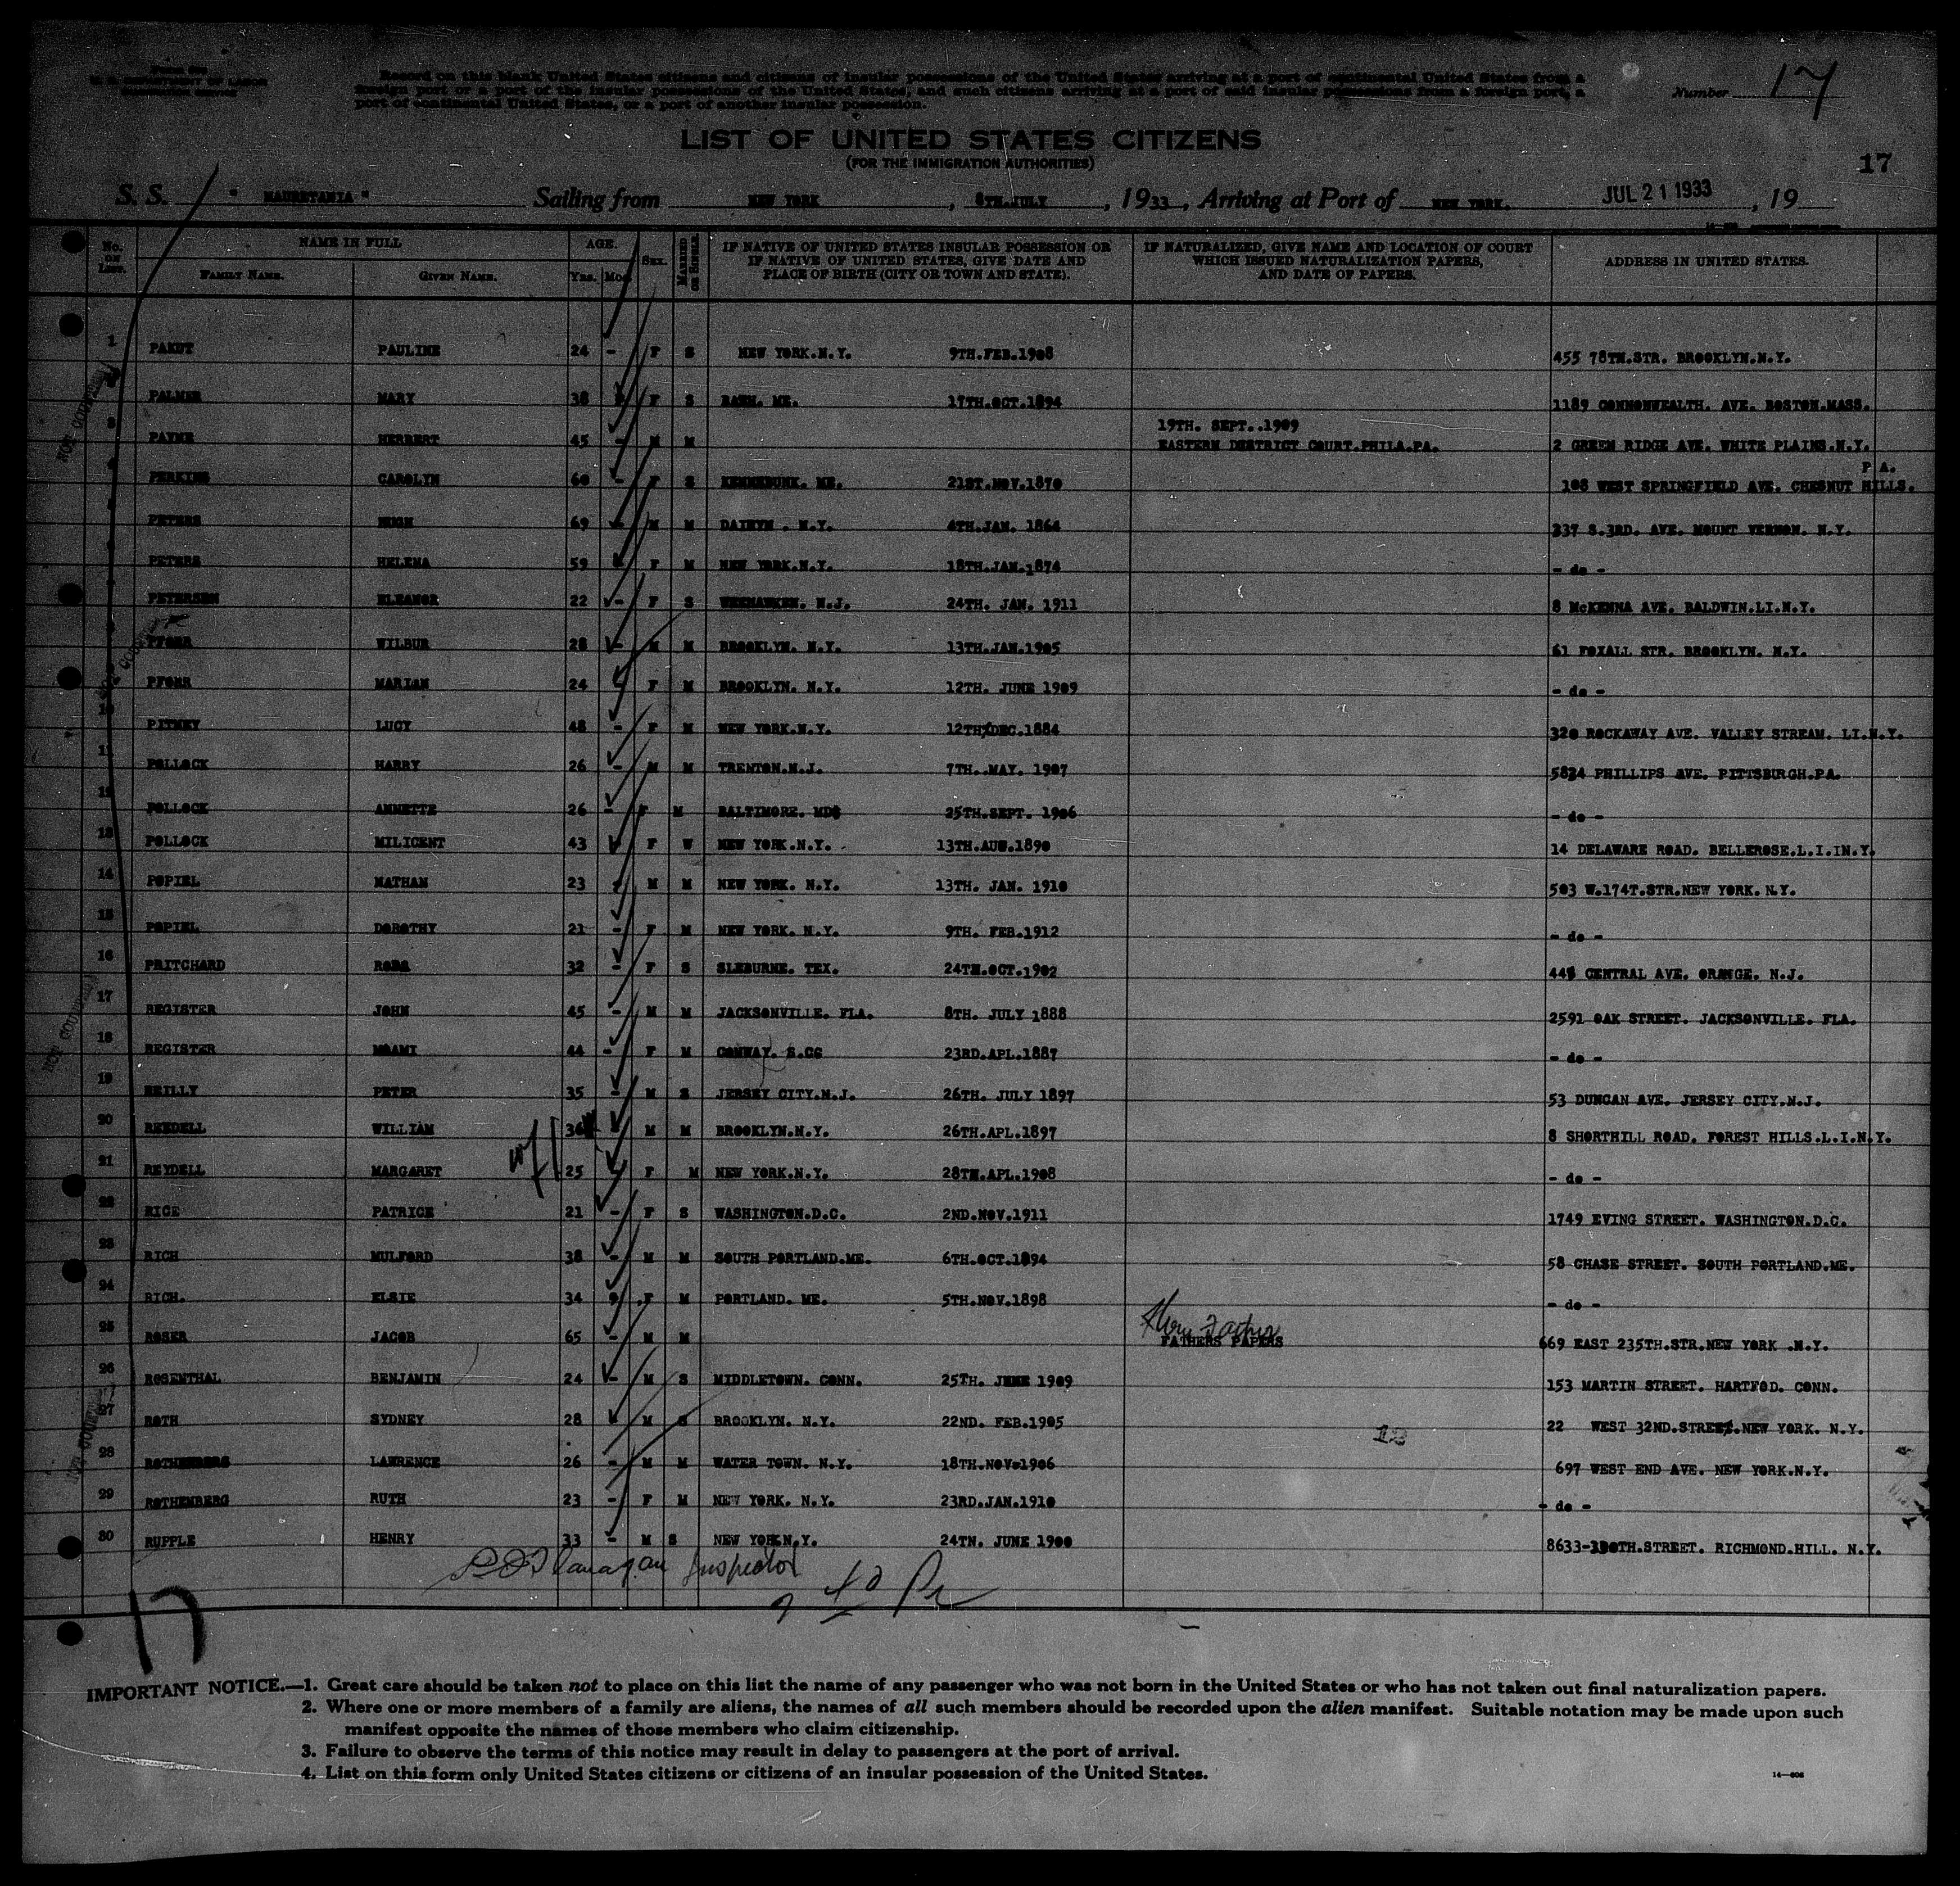 U. S. DEPARTMENT OF LABOR
Record on this blank United States citizens and citizens of insular possessions of the United States arriving at a port of continental United States from a
foreign port or a port of the insular possessions of the United States, and such citizens arriving at a port of said insular possessions from a foreign port, a
port of continental United States, or a port of another insular possession.
Number 17
LIST OF UNITED STATES CITIZENS
(FOR THE IMMIGRATION AUTHORITIES)
17
S. S. " MAURETANIA " Sailing from NEW YORK , 8TH.JULY , 1933 , Arriving at Port of NEW YORK. JUL 21 1933 , 19
No. ON LIST. NAME IN FULL AGE. SEX. MARRIED OR SINGLE. IF NATIVE OF UNITED STATES INSULAR POSSESSION OR IF NATIVE OF UNITED STATES, GIVE DATE AND PLACE OF BIRTH (CITY OR TOWN AND STATE). IF NATURALIZED, GIVE NAME AND LOCATION OF COURT WHICH ISSUED NATURALIZATION PAPERS, AND DATE OF PAPERS. ADDRESS IN UNITED STATES.
FAMILY NAME. GIVEN NAME. YRS. MOS.
1 PAULINE 24 - F S NEW YORK.N.Y. 9TH.FEB.1908 455 78TH.STR. BROOKLYN.N.Y.
PALMER MARY 38 F S BATH. ME. 17TH.OCT.1894 1189 COMMONWEALTH. AVE. BOSTON.MASS.
19TH. SEPT..1909
3 PAYNE HERBERT 45 - M M EASTERN DISTRICT COURT.PHILA.PA. 2 GREEN RIDGE AVE. WHITE PLAINS.N.Y.
P A.
4 PERKINS CAROLYN 60 - F S KENNEBUNK. ME. 21ST.NOV.1870 108 WEST SPRINGFIELD AVE. CHESNUT HILLS.
PETERS 69 - M M N.Y. 4TH.JAN. 1864 337 S.3RD. AVE. MOUNT VERNON. N.Y.
PETERS HELENA 59 F M NEW YORK.N.Y. 18TH.JAN.1874 - do -
PETERSEN ELEANOR 22 - F S WEEHAWKEN. N.J. 24TH. JAN. 1911 8 McKENNA AVE. BALDWIN.LI.N.Y.
PFOHR WILBUR 28 - M M BROOKLYN. N.Y. 13TH.JAN.1905 61 FOXALL STR. BROOKLYN. N.Y.
PFOHR MARIAN 24 F M BROOKLYN. N.Y. 12TH. JUNE 1909 - do -
10 PITNEY LUCY 48 - F M NEW YORK.N.Y. 12TH/DEC.1884 320 ROCKAWAY AVE. VALLEY STREAM. LI.N.Y.
11 POLLOCK HARRY 26 - M M TRENTON.N.J. 7TH..MAY. 1907 5834 PHILLIPS AVE. PITTSBURGH.PA.
12 POLLOCK ANNETTE 26 - F M BALTIMORE. MD$ 25TH.SEPT. 1906 - do -
13 POLLOCK MILICENT 43 F W NEW YORK.N.Y. 13TH.AUG.1890 14 DELAWARE ROAD. BELLEROSE.L.I.IN.Y.
14 POPIEL NATHAN 23 M M NEW YORK. N.Y. 13TH. JAN. 1910 503 W.174T.STR.NEW YORK. N.Y.
15 POPIEL DOROTHY 21 - F M NEW YORK. N.Y. 9TH. FEB.1912 - do -
16 PRITCHARD 32 - F S SLEBURNE. TEX. 24TH.OCT.1902 CENTRAL AVE. ORANGE. N.J.
17 REGISTER JOHN 45 - M M JACKSONVILLE. FLA. 8TH. JULY 1888 2591 OAK STREET. JACKSONVILLE. FLA.
18 REGISTER 44 - F M CONWAY. S.CC 23RD.APL.1887 - do -
19 REILLY PETER 35 - M S JERSEY CITY.N.J. 26TH. JULY 1897 53 DUNCAN AVE. JERSEY CITY.N.J.
20 WILLIAM 36 M M BROOKLYN.N.Y. 26TH.APL.1897 8 SHORTHILL ROAD. FOREST HILLS.L.I.N.Y.
21 REYDELL MARGARET 25 F M NEW YORK.N.Y. 28TH.APL.1908 - do -
22 RICE PATRICE 21 - F S WASHINGTON.D.C. 2ND.NOV.1911 1749 EVING STREET. WASHINGTON.D.C.
23 RICH MULFORD 38 - M M SOUTH PORTLAND.ME. 6TH.OCT.1894 58 CHASE STREET. SOUTH PORTLAND.ME.
24 RICH. ELSIE 34 F M PORTLAND. ME. 5TH.NOV.1898 - do -
25 ROSER JACOB 65 - M M FATHERS PAPERS 669 EAST 235TH.STR.NEW YORK .N.Y.
26 ROSENTHAL BENJAMIN 24 - M S MIDDLETOWN. CONN. 25TH. JUNE 1909 153 MARTIN STREET. HARTFOD. CONN.
27 ROTH SYDNEY 28 M S BROOKLYN. N.Y. 22ND. FEB.1905 22 WEST 32ND.STREET.NEW YORK. N.Y.
12
28 ROTHENBERG LAWRENCE 26 - M M WATER TOWN. N.Y. 18TH.NOV.1906 697 WEST END AVE. NEW YORK.N.Y.
29 ROTHENBERG RUTH 23 - F M NEW YORK. N.Y. 23RD.JAN.1910 - do -
30 RUPPLE HENRY 33 - M S NEW YORK.N.Y. 24TN. JUNE 1900 8633-130TH.STREET. RICHMOND.HILL. N.Y.
Flanagan Inspector
17
IMPORTANT NOTICE.—1. Great care should be taken not to place on this list the name of any passenger who was not born in the United States or who has not taken out final naturalization papers.
2. Where one or more members of a family are aliens, the names of all such members should be recorded upon the alien manifest. Suitable notation may be made upon such
manifest opposite the names of those members who claim citizenship.
3. Failure to observe the terms of this notice may result in delay to passengers at the port of arrival.
4. List on this form only United States citizens or citizens of an insular possession of the United States.